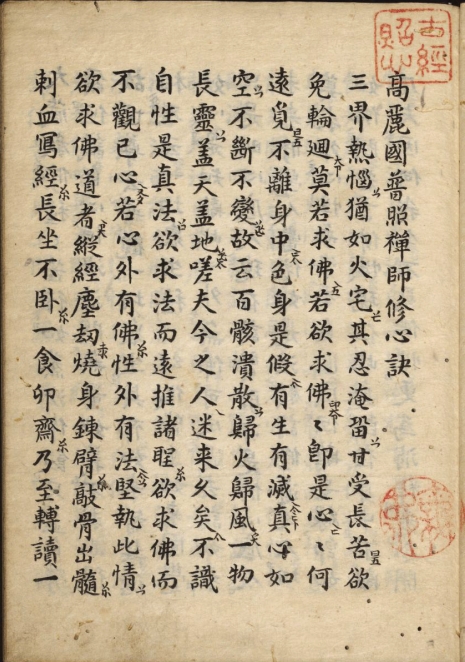 高麗國普照禪師修心訣
三界熱惱猶如火宅其忍淹留甘受長苦欲
免輪廻莫若求佛若欲求佛〻卽是心〻何
遠覓不離身中色身是假有生有滅真心如
空不斷不變故云百骸潰散歸火歸風一物
長靈盖天盖地嗟夫今之人迷来久矣不識
自性是真法欲求法而遠推諸聖欲求佛而
不觀己心若心外有佛性外有法堅執此情
欲求佛道者縱經塵劫燒身鍊臂敲骨出髓
刺血寫經長坐不卧一食卯齋乃至轉讀一